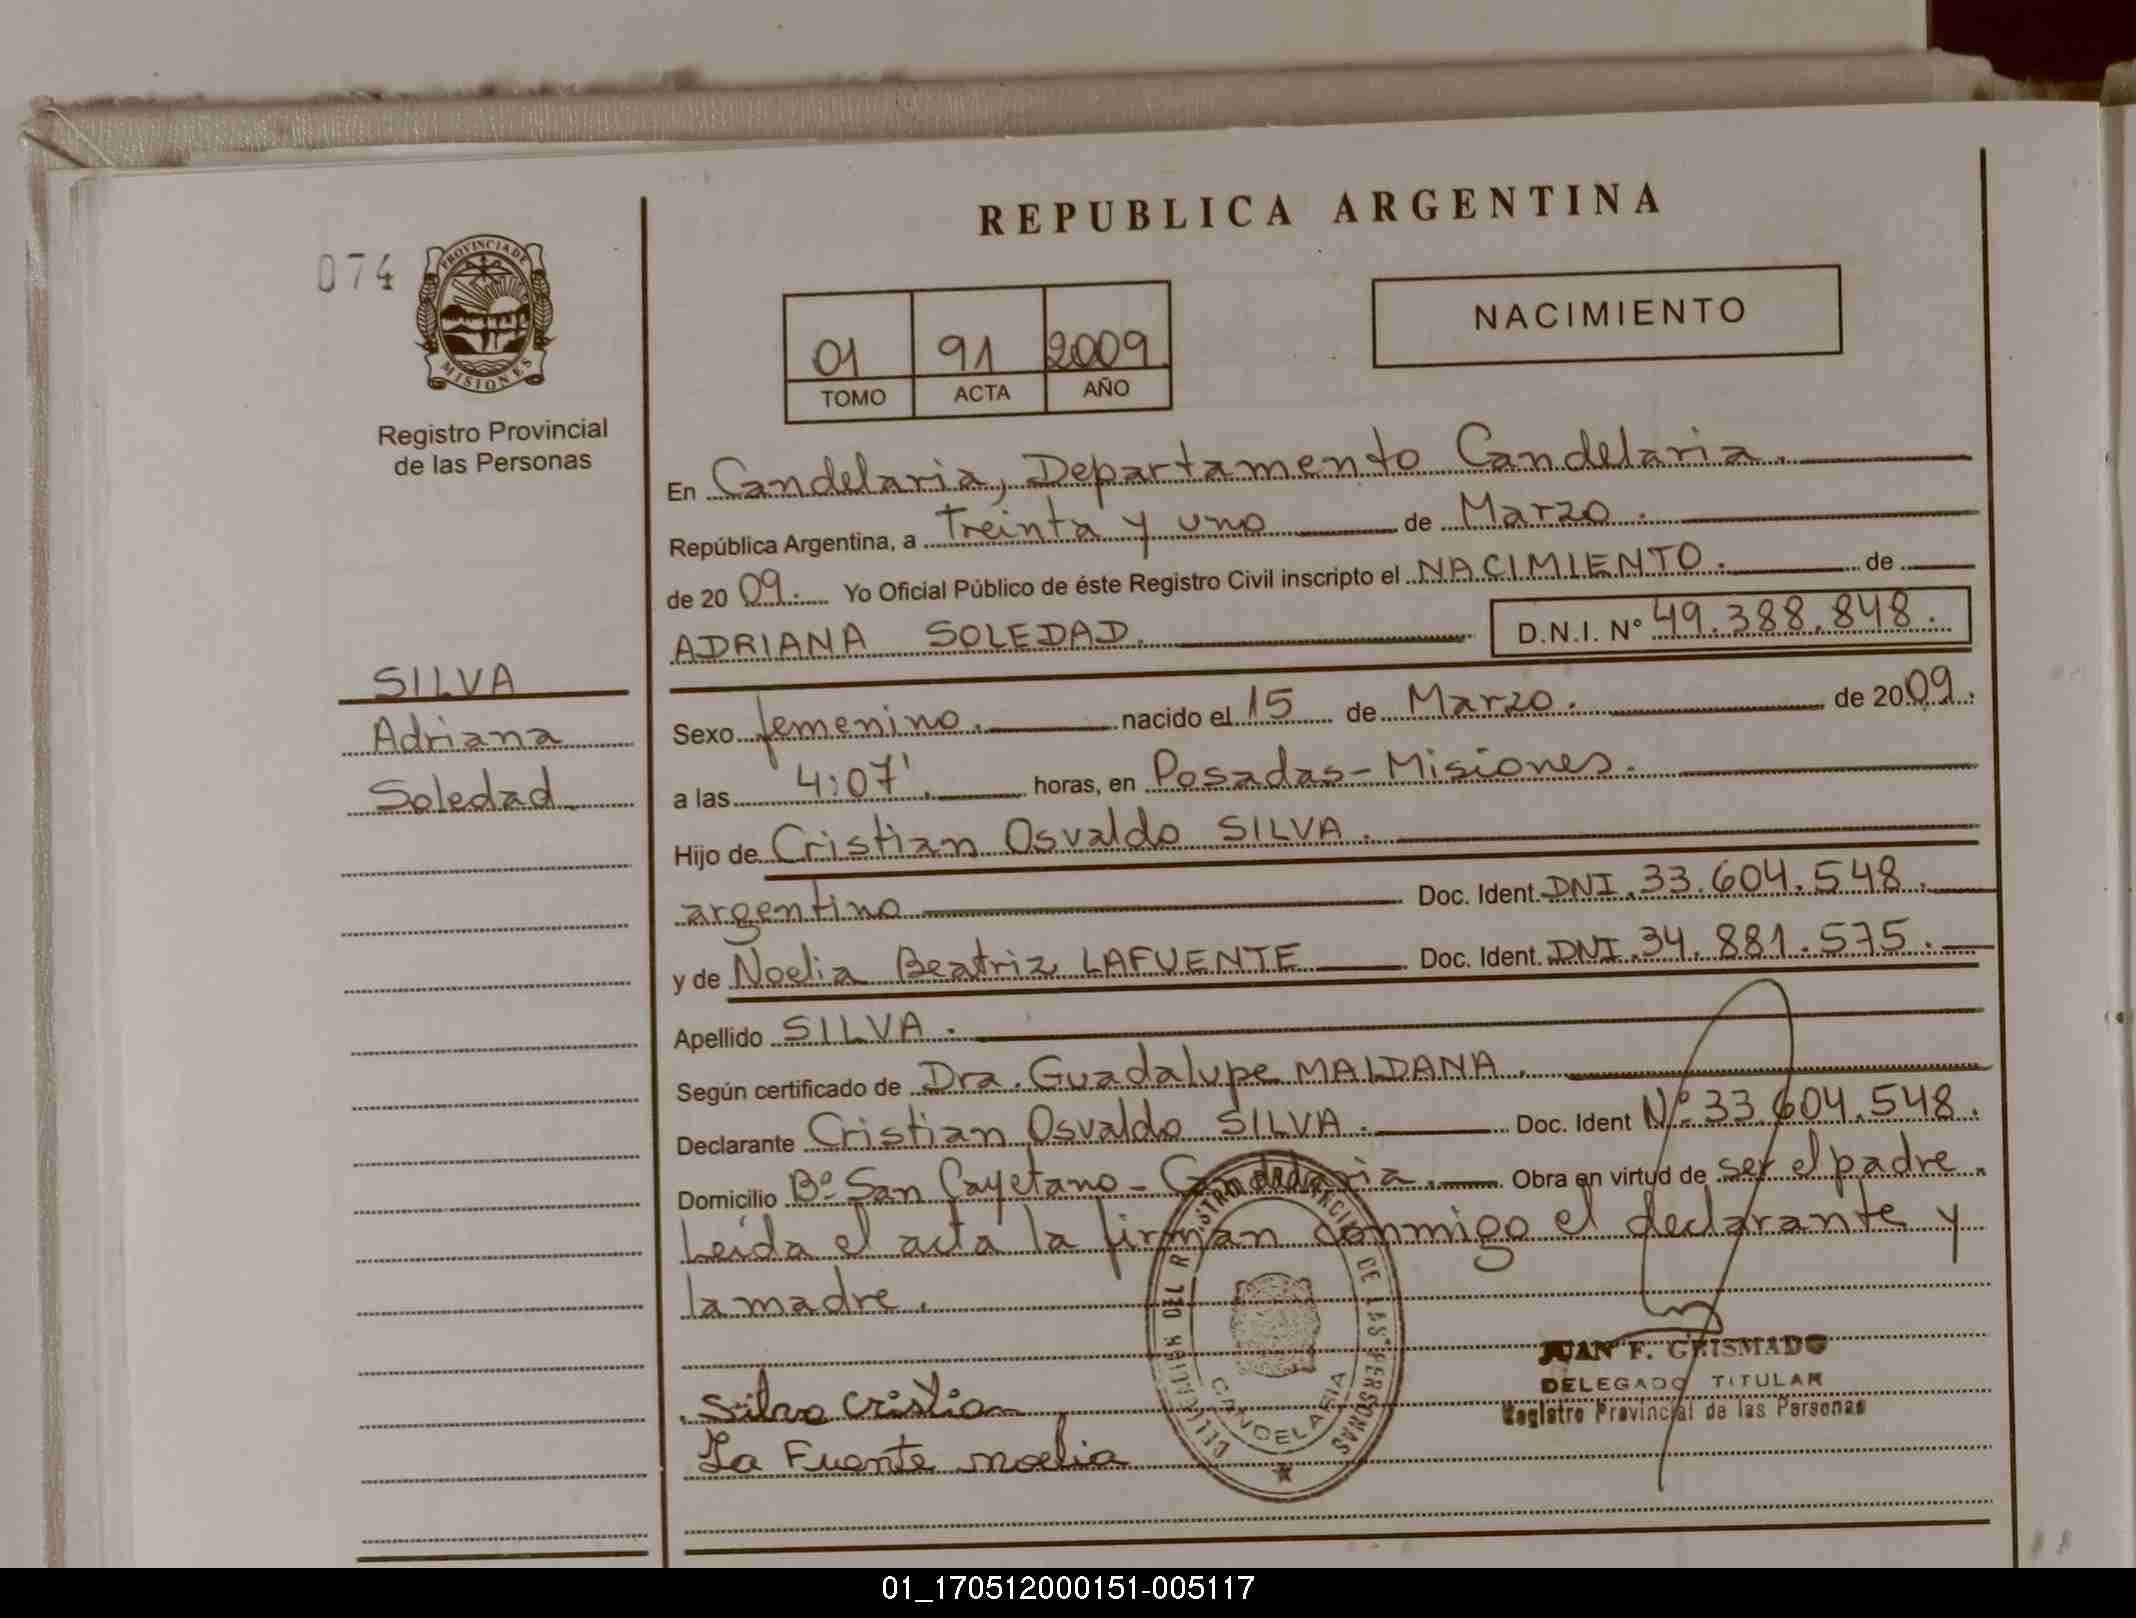 REPUBLICA ARGENTINA
074
PROVINCIA DE
MISIONES
Registro Provincial
de las Personas
01 91 2009
TOMO ACTA AÑO
NACIMIENTO
SILVA
Adriana
Soledad
En Candelaria, Departamento Candelaria.
República Argentina, a Treinta y uno de Marzo.
de 2009. Yo Oficial Público de éste Registro Civil inscripto el NACIMIENTO. de
ADRIANA SOLEDAD. D.N.I. Nº 49.388.848.
Sexo femenino. nacido el 15 de Marzo. de 2009.
a las 4:07'. horas, en Posadas-Misiones.
Hijo de Cristian Osvaldo SILVA.
argentino Doc. Ident. DNI. 33.604.548.
y de Noelia Beatriz LAFUENTE Doc. Ident. DNI. 34.881.575.
Apellido SILVA.
Según certificado de Dra. Guadalupe MALDANA.
Declarante Cristian Osvaldo SILVA. Doc. Ident Nº 33.604.548.
Domicilio Bº San Cayetano - Candelaria. Obra en virtud de ser el padre.
Leída el acta la firman conmigo el declarante y
la madre.
JUAN F. GRISMADO
DELEGADO TITULAR
Registro Provincial de las Personas
Silva Cristian
La Fuente noelia
DE LAS PERSONAS
CANDELARIA
01_170512000151-005117